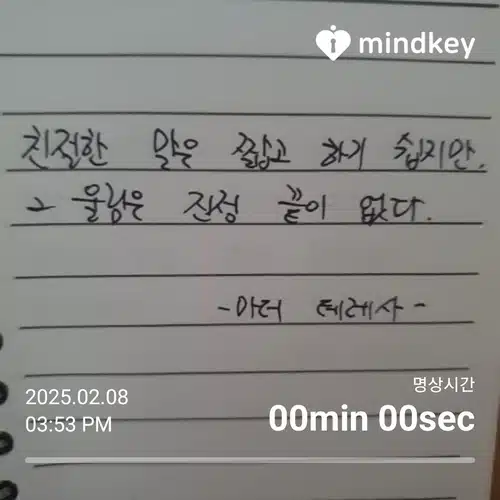 mindkey
친절한 말은 짧고 하기 쉽지만,
그 울림은 진정 끝이 없다.
-마더 테레사-
2025.02.08
03:53 PM
명상시간
00min 00sec